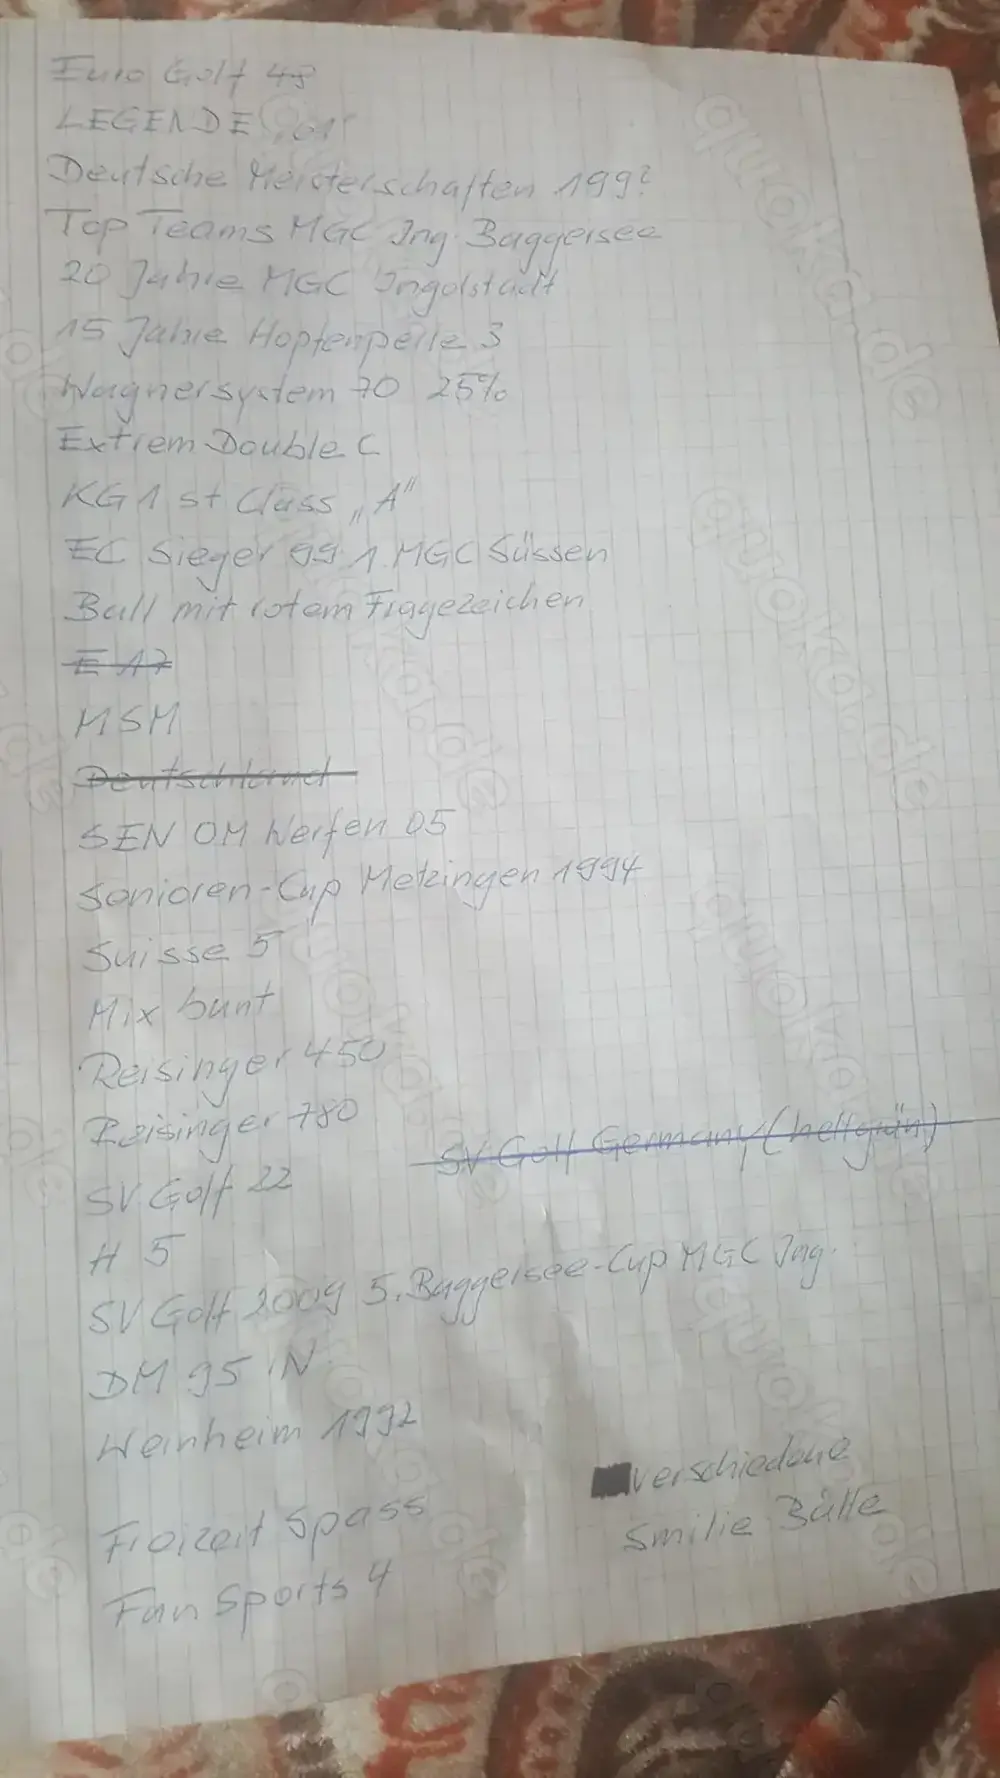 Euro Golf 48
LEGENDE "01"
Deutsche Meisterschaften 1992
Top Teams MGC Ing. Baggersee
20 Jahre MGC Ingolstadt
15 Jahre Hopfenperle 3
Wagnersystem 70 25%
Extrem Double C
KG 1st Class „A"
EC Sieger 99 1. MGC Süssen
Ball mit rotem Fragezeichen
E 17
MSM
Deutschland
SEN ÖM Werfen 05
Senioren-Cup Metzingen 1994
Suisse 5
Mix bunt
Reisinger 450
Reisinger 780
SV Golf Germany (hellgrün)
SV Golf 22
H 5
SV Golf 2009 5. Baggersee-Cup MGC Ing.
DM 95 IN
Weinheim 1992
verschiedene
Smilie Bälle
Freizeit Spass
Fun Sports 4
quoka.de